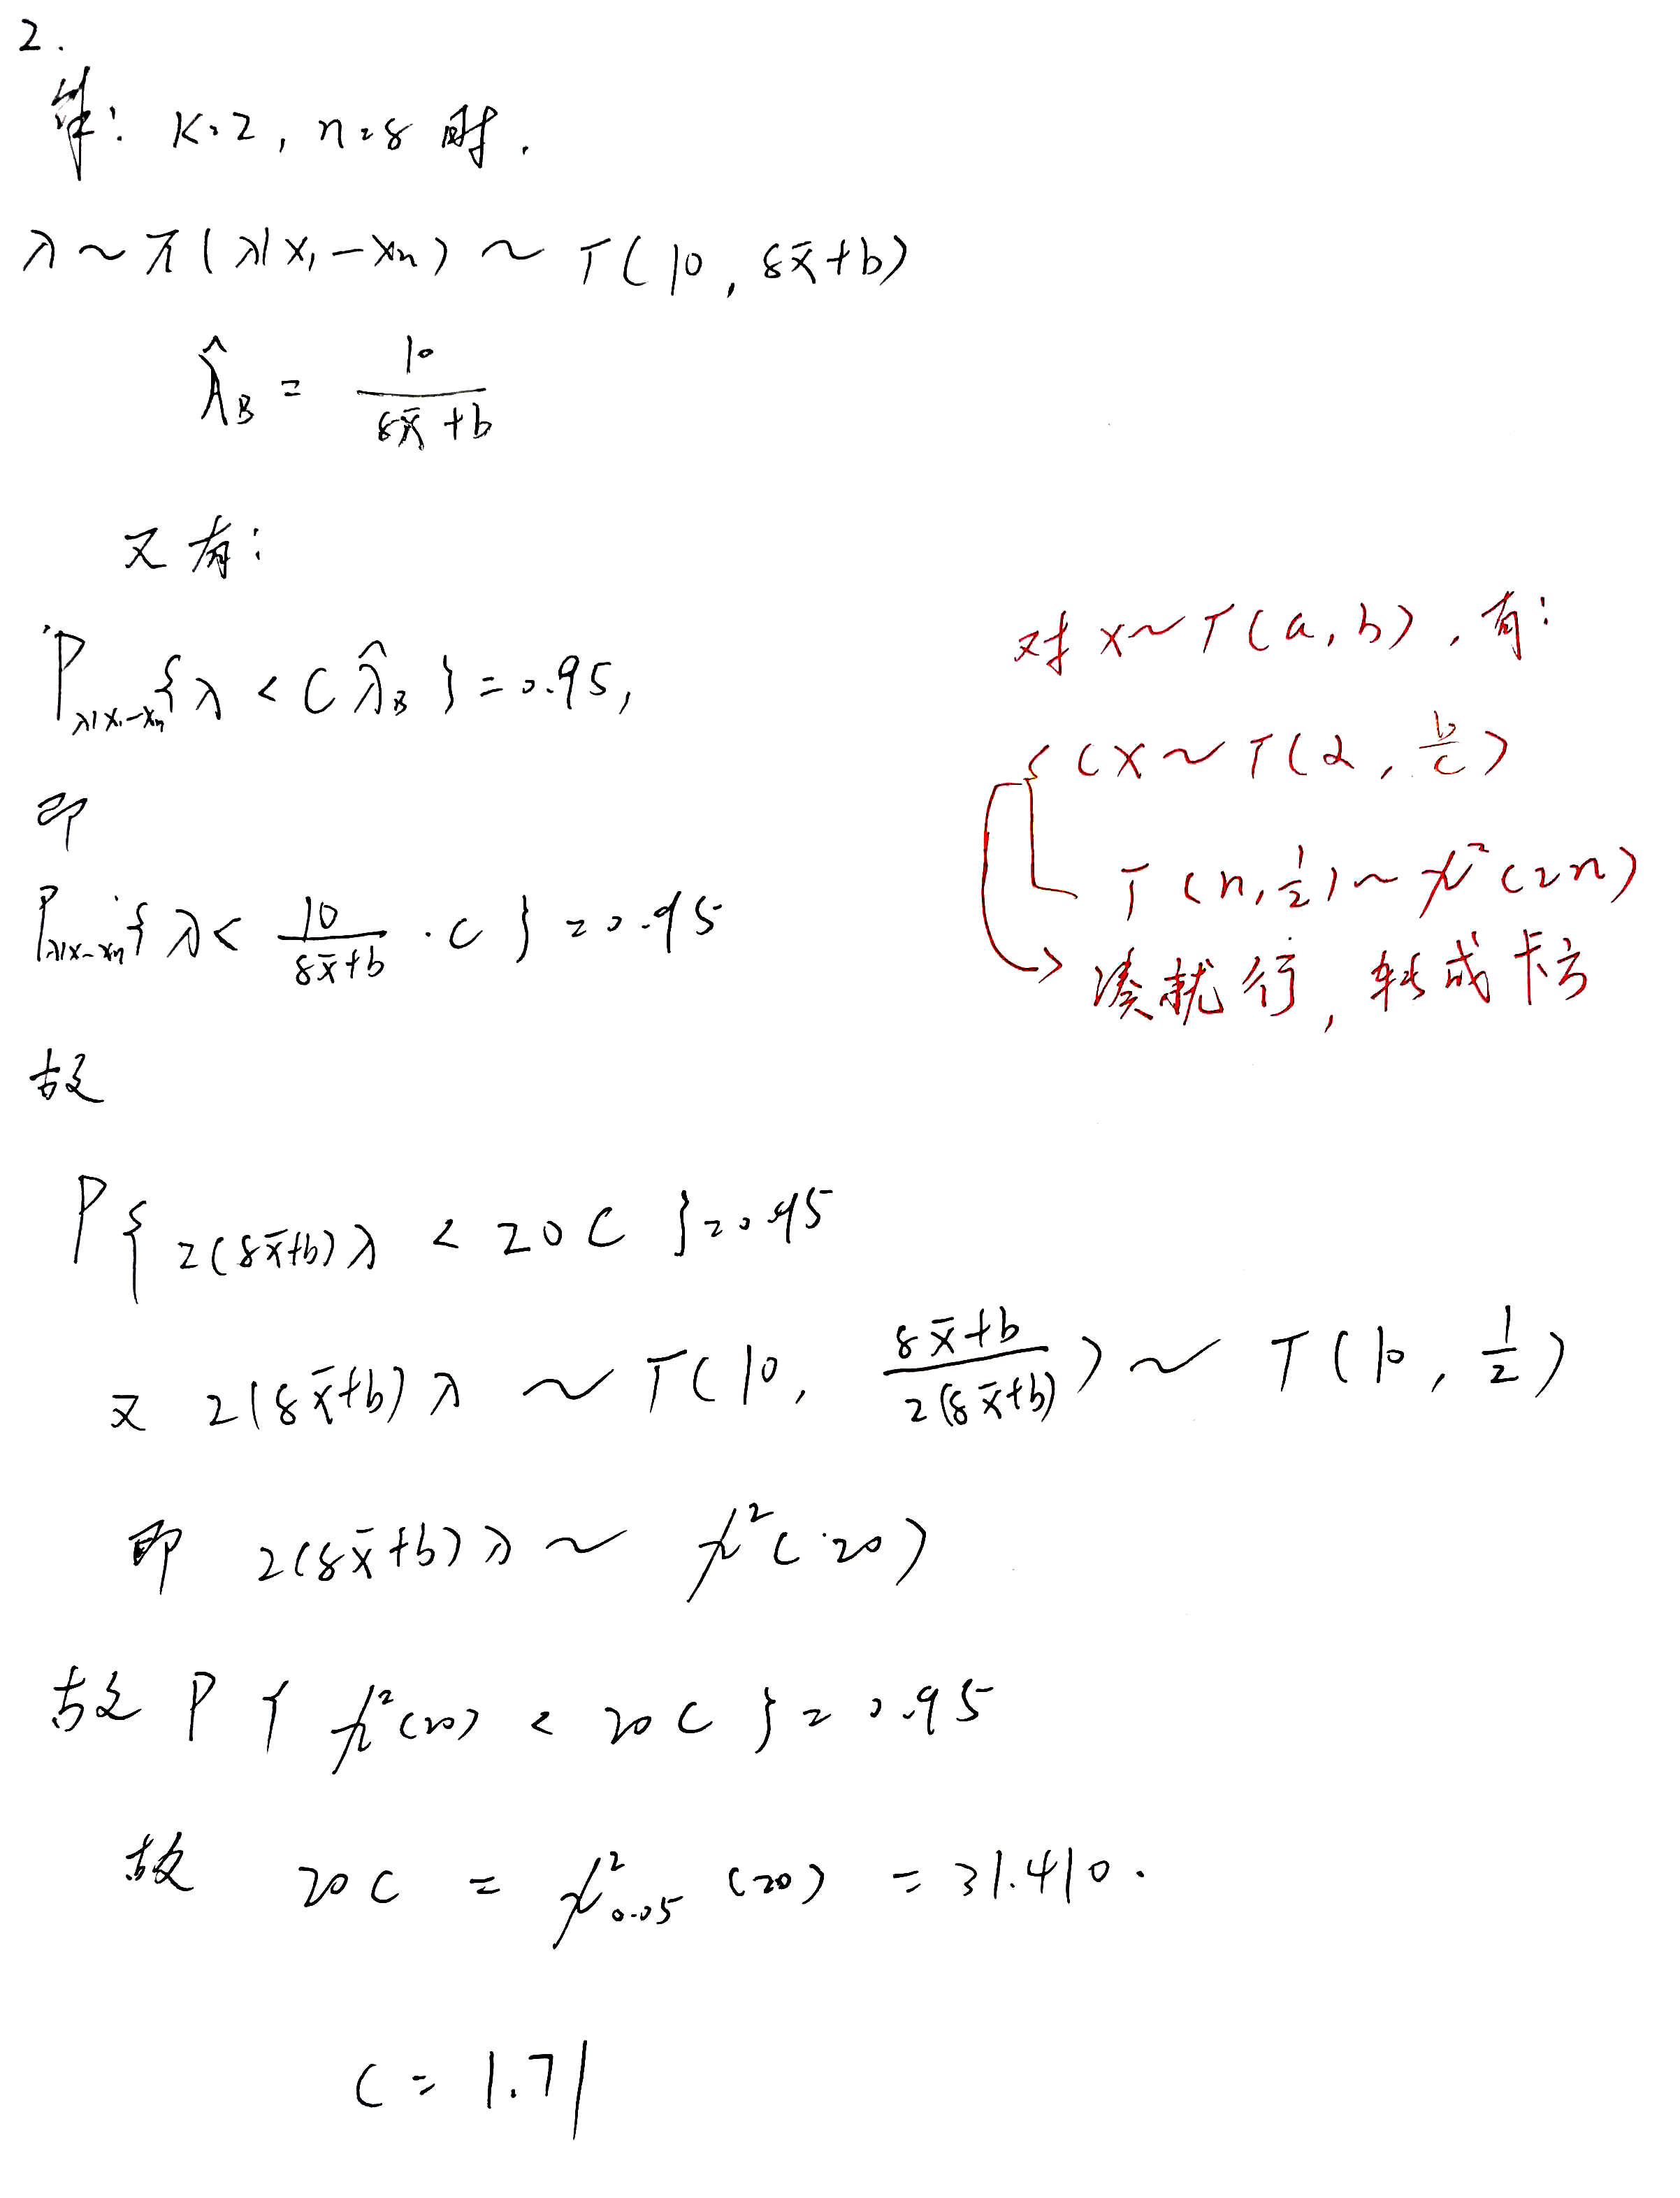 2.
解: K=2, n=8 时.
λ ~ π(λ|x₁-xₙ) ~ Γ(10, 8x̄+b)
λ̂_B = 10/(8x̄+b)
又有:
P_{λ|x₁-xₙ}{λ < Cλ̂_B} = 0.95,
即
P_{λ|x₁-xₙ}{λ < 10/(8x̄+b) · C} = 0.95
故
P{2(8x̄+b)λ < 20C} = 0.95
又 2(8x̄+b)λ ~ Γ(10, (8x̄+b)/(2(8x̄+b))) ~ Γ(10, 1/2)
即 2(8x̄+b)λ ~ χ²(20)
故 P{χ²(20) < 20C} = 0.95
故 20C = χ²_{0.05}(20) = 31.410.
C = 1.71
对 x~Γ(a, b), 有:
{ CX ~ Γ(α, b/c)
Γ(n, 1/2) ~ χ²(2n)
→ 凑就行, 转成卡方